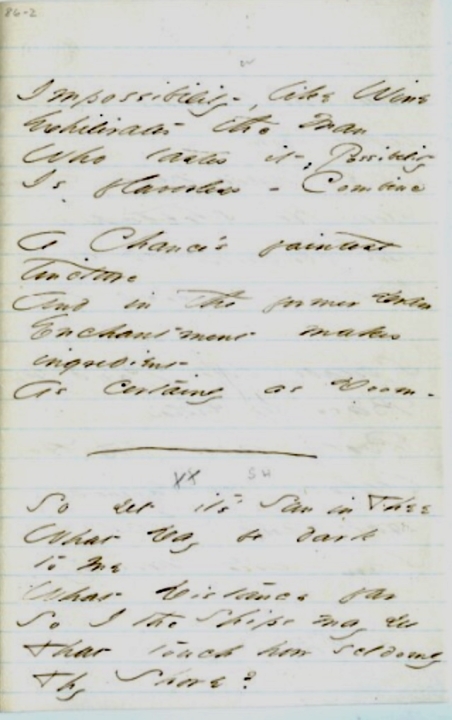 86-2
Impossibility, like Wine
Exhilirates the Man
Who tastes it; Possibility
Is flavorless - Combine
A Chance's faintest
tincture
And in the former Dram
Enchantment makes
ingredient
As certainly as Doom -
XX SH
So set its Sun in Thee
What Day be dark
to me
What Distance far
So I the Ships may see
That touch how seldomly
Thy Shore?